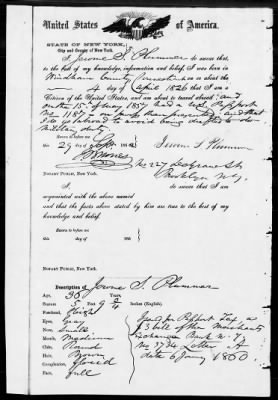 United States of America.
STATE OF NEW YORK,
City and County of New York.
I, Jerome S. Plummer do swear that,
to the best of my knowledge, information and belief, I was born in
Windham County Connecticut on or about the
4 day of April 1826 that I am a
Citizen of the United States, and am about to travel abroad; and
on the 15th of May 1857 had a U.S. Passport
No and that
I do go abroad to avoid being drafted to do
military duty.
Sworn to before me
this 29 day of 1862
Jerome S Plummer
No 227 St
NOTARY PUBLIC, New York.
Brooklyn N.Y.
I, do swear that I am
acquainted with the above named
and that the facts above stated by him are true to the best of my
knowledge and belief.
Sworn to before me
this day of 186
NOTARY PUBLIC, New York.
Description of Jerome S. Plummer
Age, 36
Stature, 5 Feet 9 3/4 Inches (English).
Forehead, high
Eyes, Gray
Nose, Small
Mouth, Medium
Chin, Round
Hair, Brown
Complexion, florid
Face, full
for Passport Fee, a
$3 bill of the Merchants
Exchange Bank N.Y.
No 3734 Letter A
date 6 1860